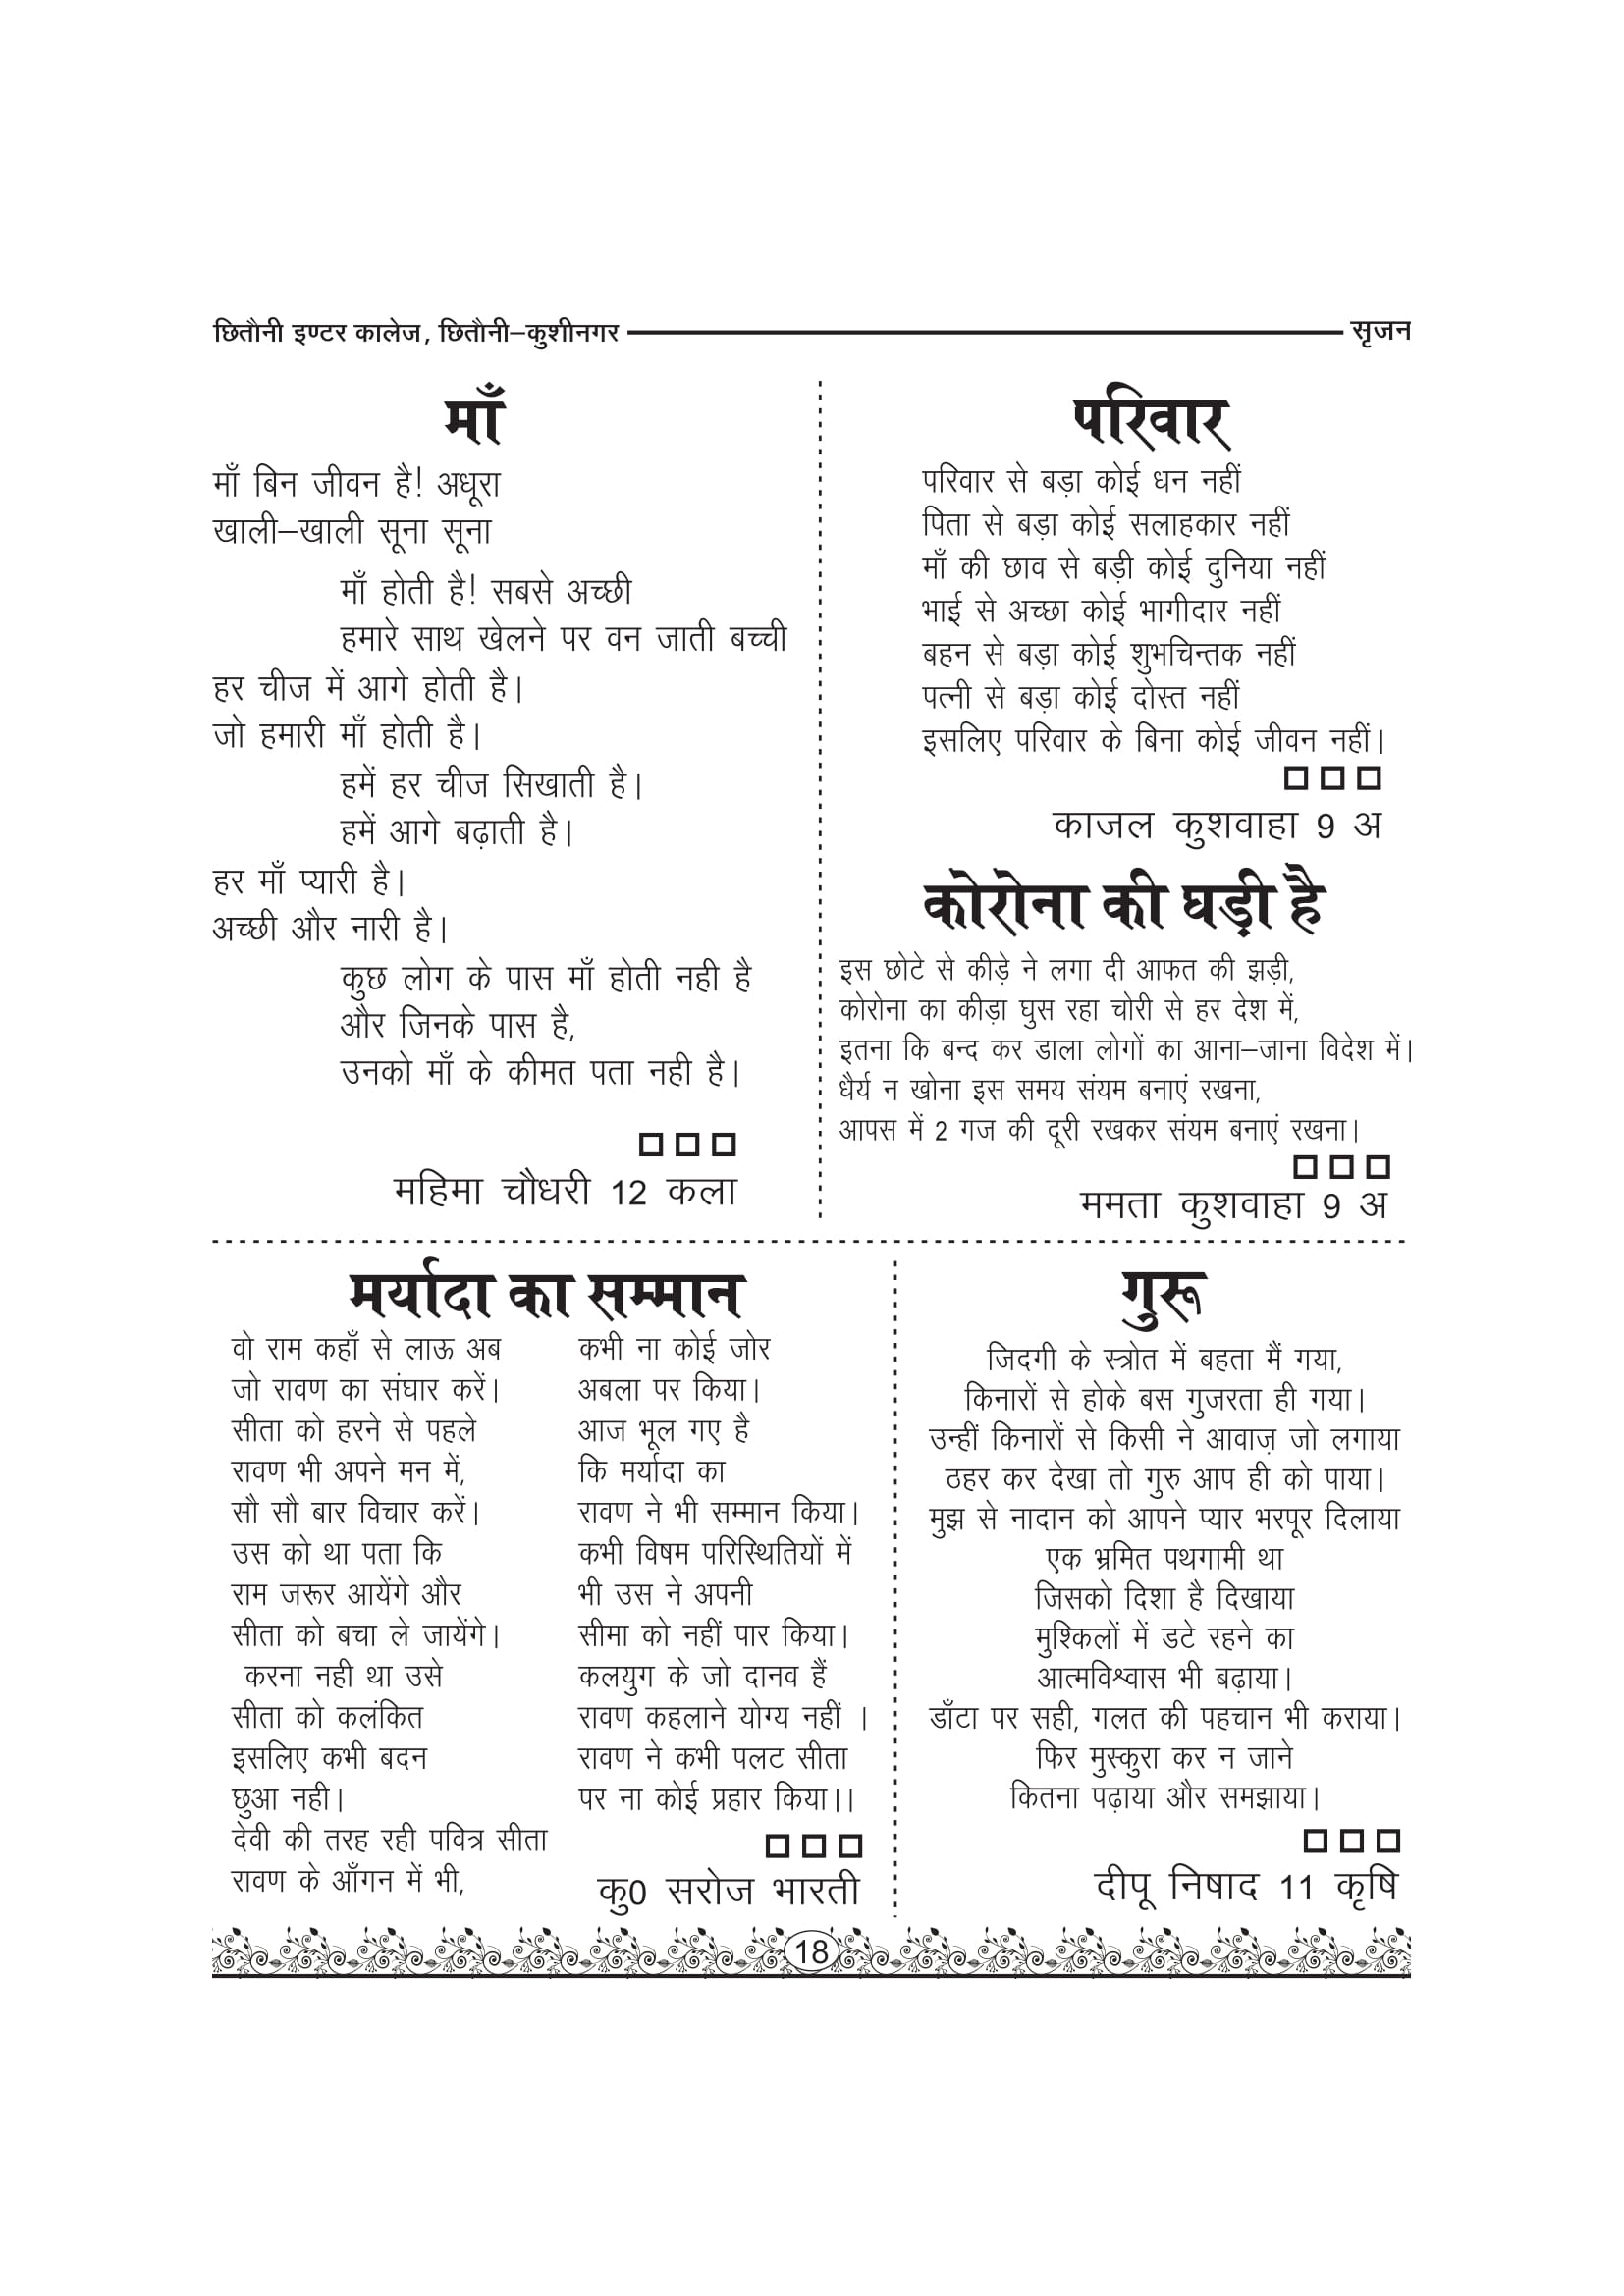 छितौनी इण्टर कालेज, छितौनी–कुशीनगर
सृजन
माँ
माँ बिन जीवन है! अधूरा
खाली–खाली सूना सूना
माँ होती है! सबसे अच्छी
हमारे साथ खेलने पर वन जाती बच्ची
हर चीज में आगे होती है।
जो हमारी माँ होती है।
हमें हर चीज सिखाती है।
हमें आगे बढ़ाती है।
हर माँ प्यारी है।
अच्छी और नारी है।
कुछ लोग के पास माँ होती नही है
और जिनके पास है,
उनको माँ के कीमत पता नही है।
महिमा चौधरी 12 कला
परिवार
परिवार से बड़ा कोई धन नहीं
पिता से बड़ा कोई सलाहकार नहीं
माँ की छाव से बड़ी कोई दुनिया नहीं
भाई से अच्छा कोई भागीदार नहीं
बहन से बड़ा कोई शुभचिन्तक नहीं
पत्नी से बड़ा कोई दोस्त नहीं
इसलिए परिवार के बिना कोई जीवन नहीं।
काजल कुशवाहा 9 अ
कोरोना की घड़ी है
इस छोटे से कीड़े ने लगा दी आफत की झड़ी,
कोरोना का कीड़ा घुस रहा चोरी से हर देश में,
इतना कि बन्द कर डाला लोगों का आना–जाना विदेश में।
धैर्य न खोना इस समय संयम बनाएं रखना,
आपस में 2 गज की दूरी रखकर संयम बनाएं रखना।
ममता कुशवाहा 9 अ
मर्यादा का सम्मान
वो राम कहाँ से लाऊ अब
जो रावण का संघार करें।
सीता को हरने से पहले
रावण भी अपने मन में,
सौ सौ बार विचार करें।
उस को था पता कि
राम जरूर आयेंगे और
सीता को बचा ले जायेंगे।
करना नही था उसे
सीता को कलंकित
इसलिए कभी बदन
छुआ नही।
देवी की तरह रही पवित्र सीता
रावण के आँगन में भी,
कभी ना कोई जोर
अबला पर किया।
आज भूल गए है
कि मर्यादा का
रावण ने भी सम्मान किया।
कभी विषम परिस्थितियों में
भी उस ने अपनी
सीमा को नहीं पार किया।
कलयुग के जो दानव हैं
रावण कहलाने योग्य नहीं ।
रावण ने कभी पलट सीता
पर ना कोई प्रहार किया।।
कु0 सरोज भारती
गुरू
जिदगी के स्त्रोत में बहता मैं गया,
किनारों से होके बस गुजरता ही गया।
उन्हीं किनारों से किसी ने आवाज़ जो लगाया
ठहर कर देखा तो गुरु आप ही को पाया।
मुझ से नादान को आपने प्यार भरपूर दिलाया
एक भ्रमित पथगामी था
जिसको दिशा है दिखाया
मुश्किलों में डटे रहने का
आत्मविश्वास भी बढ़ाया।
डाँटा पर सही, गलत की पहचान भी कराया।
फिर मुस्कुरा कर न जाने
कितना पढ़ाया और समझाया।
दीपू निषाद 11 कृषि
18